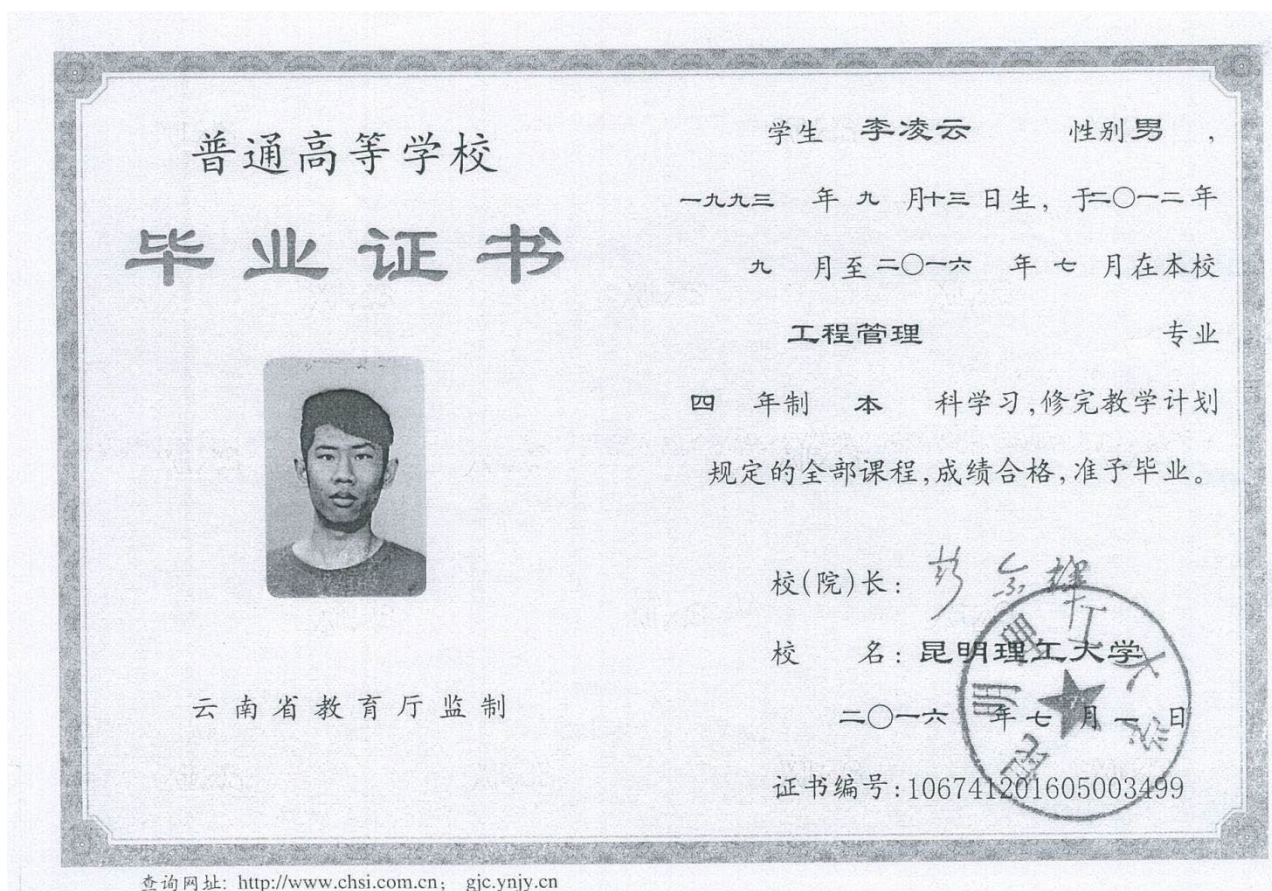 普通高等学校
毕业证书
云南省教育厅监制
学生 李凌云 性别 男 ，
一九九三 年 九 月十三日生，于二〇一二年
九 月至二〇一六 年 七 月在本校
工程管理 专业
四 年制 本 科学习，修完教学计划
规定的全部课程，成绩合格，准予毕业。
校(院)长：彭金辉
校 名：昆明理工大学
二〇一六 年 七 月 一 日
证书编号：106741201605003499
昆明理工大学
查询网址: http://www.chsi.com.cn； gjc.ynjy.cn